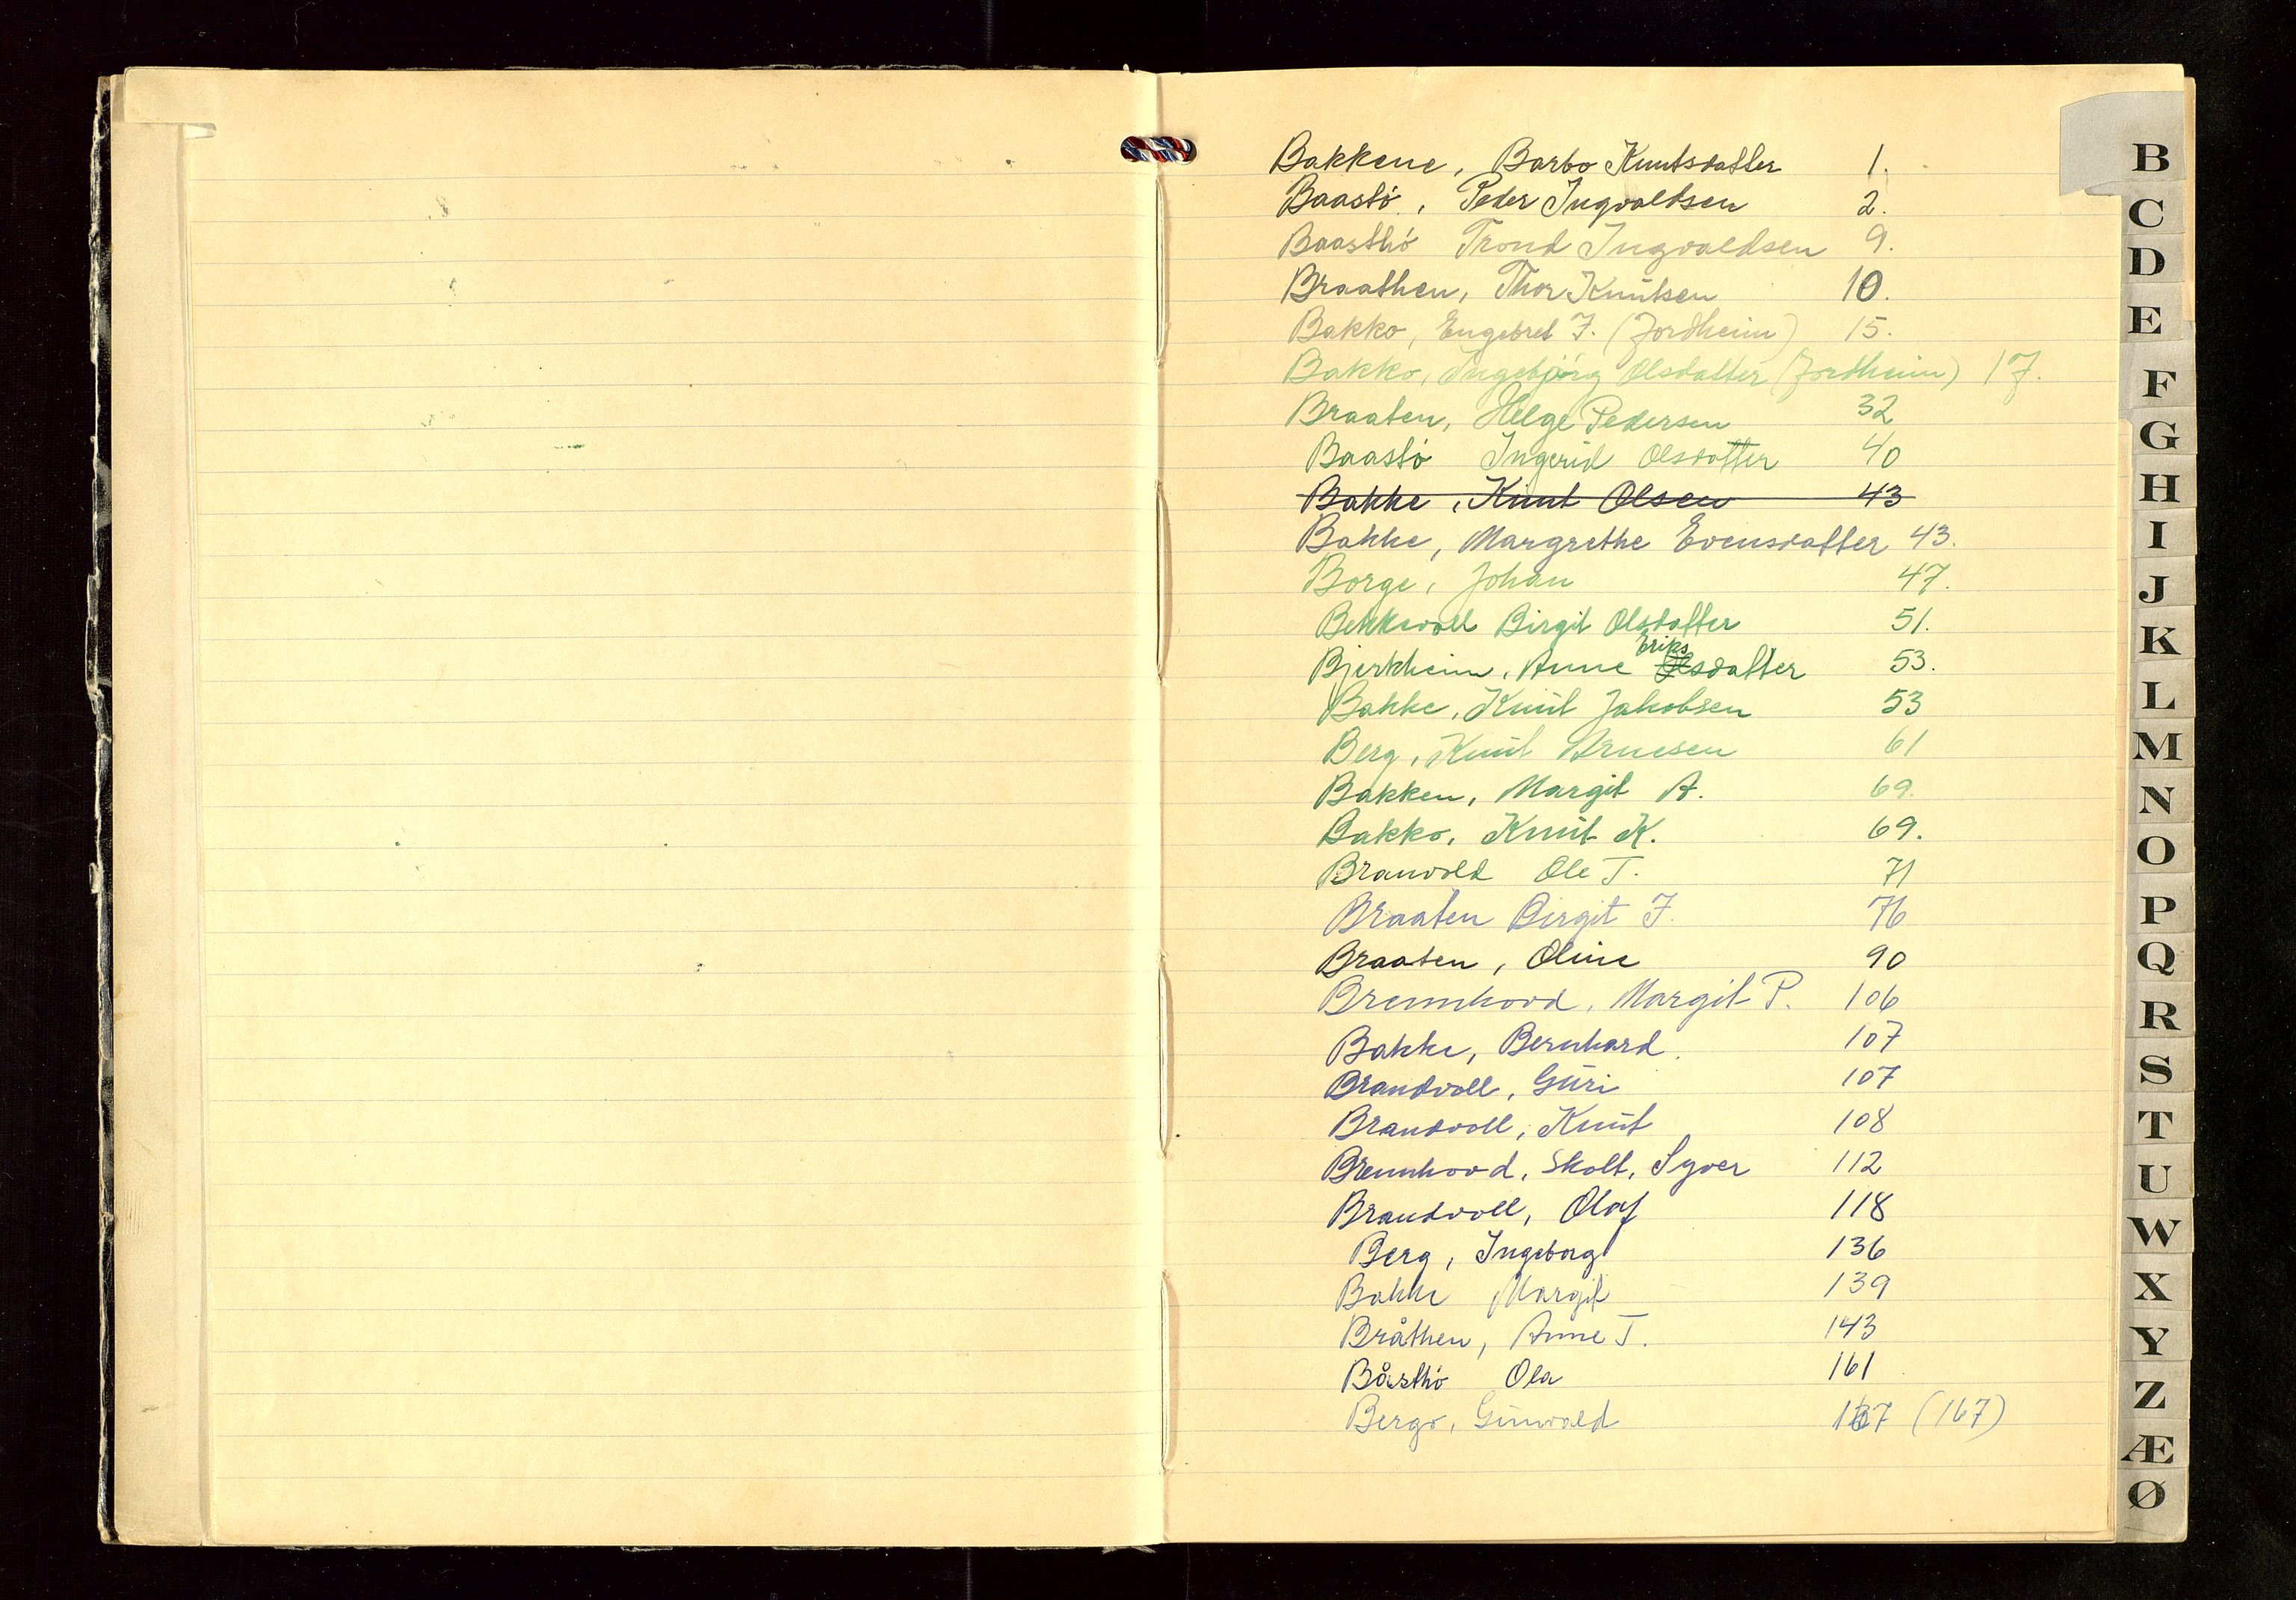 Bakkene, Barbo Knutsdatter 1.
Baastö, Peder Ingvaldsen 2.
Baasthö Trond Ingvaldsen 9.
Braathen, Thor Knutsen 10.
Bakko, Engebret J. (Jordheim) 15.
Bakko, Ingebjörg Olsdatter (Jordheim) 17.
Braaten, Helge Pedersen 32
Baastö Ingerid Olsdatter 40
Bakke, Knut Olsen 43
Bakke, Margrethe Evensdatter 43.
Borge, Johan 47.
Bekkevoll Birgit Olsdatter 51.
Eriks
Bjerkheim, Anne Olsdatter 53.
Bakke, Knut Jakobsen 53
Berg, Knut Arnesen 61
Bakken, Margit A. 69.
Bakko, Knut K. 69.
Branvold Ole T. 71
Braaten Birgit J. 76
Braaten, Oline 90
Brennhovd, Margit P. 106
Bakke, Bernhard. 107
Brandvoll, Guri 107
Brandvoll, Knut 108
Brennhovd, Skolt, Syver 112
Brandvoll, Olaf 118
Berg, Ingeborg 136
Bakke Margit 139
Bråthen, Anne T. 143
Båsthö Ola 161
Bergo, Gunvald 167 (167)
B
C
D
E
F
G
H
I
J
K
L
M
N
O
P
Q
R
S
T
U
W
X
Y
Z
Æ
Ø